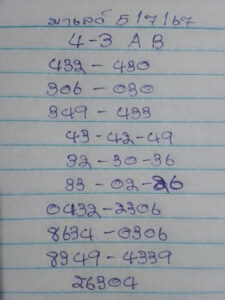 มาเลย์ 5/7/67
4-3 A B
432 - 430
306 - 030
349 - 433
43-42-49
32-30-36
33 - 02-26
0432-2306
8634-0306
8349-4339
26304